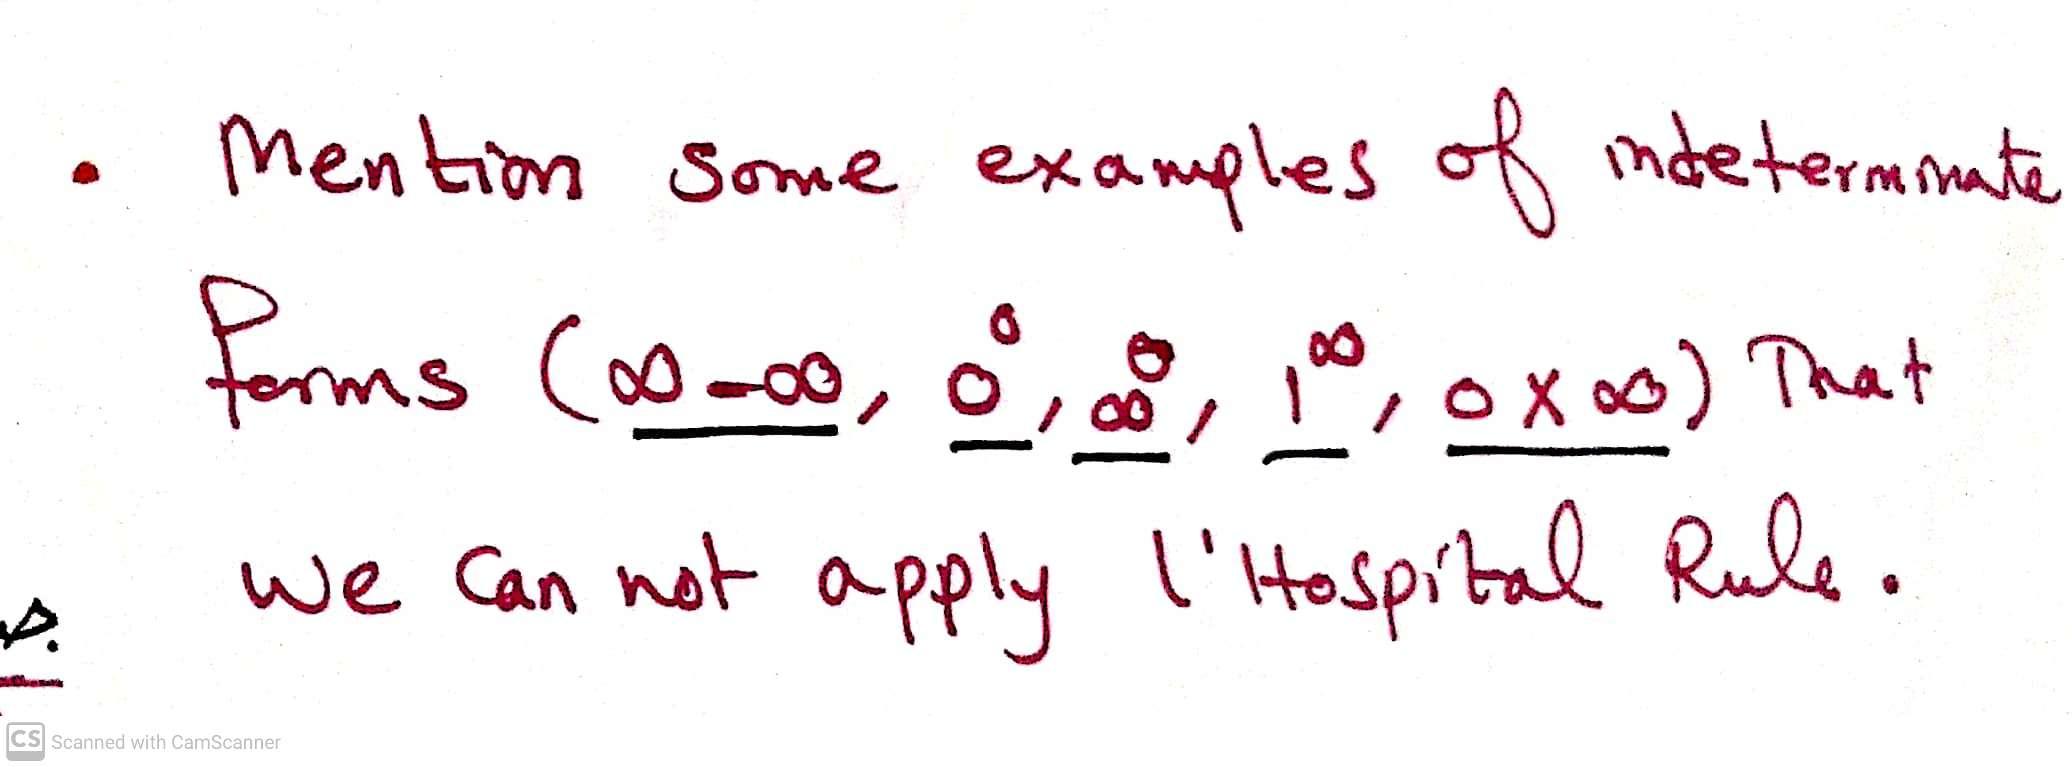 • Mention some examples of indeterminate
forms (∞-∞, 0⁰, ∞⁰, 1^∞, 0×∞) That
we can not apply l'Hospital Rule.
CS Scanned with CamScanner